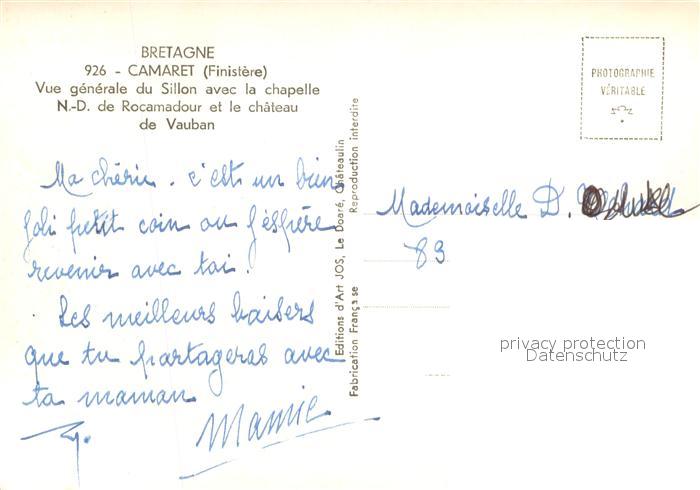 BRETAGNE
926 - CAMARET (Finistère)
Vue générale du Sillon avec la chapelle
N.-D. de Rocamadour et le château
de Vauban
PHOTOGRAPHIE
VÉRITABLE
Ma chérie. c'est un bien
joli petit coin ou j'éspère
revenir avec toi.
Les meilleurs baisers
que tu partageras avec
ta maman
Mamie
Editions d'Art JOS, Le Doaré, Châteaulin
Reproduction interdite
Fabrication Française
Mademoiselle D.
89
privacy protection
Datenschutz